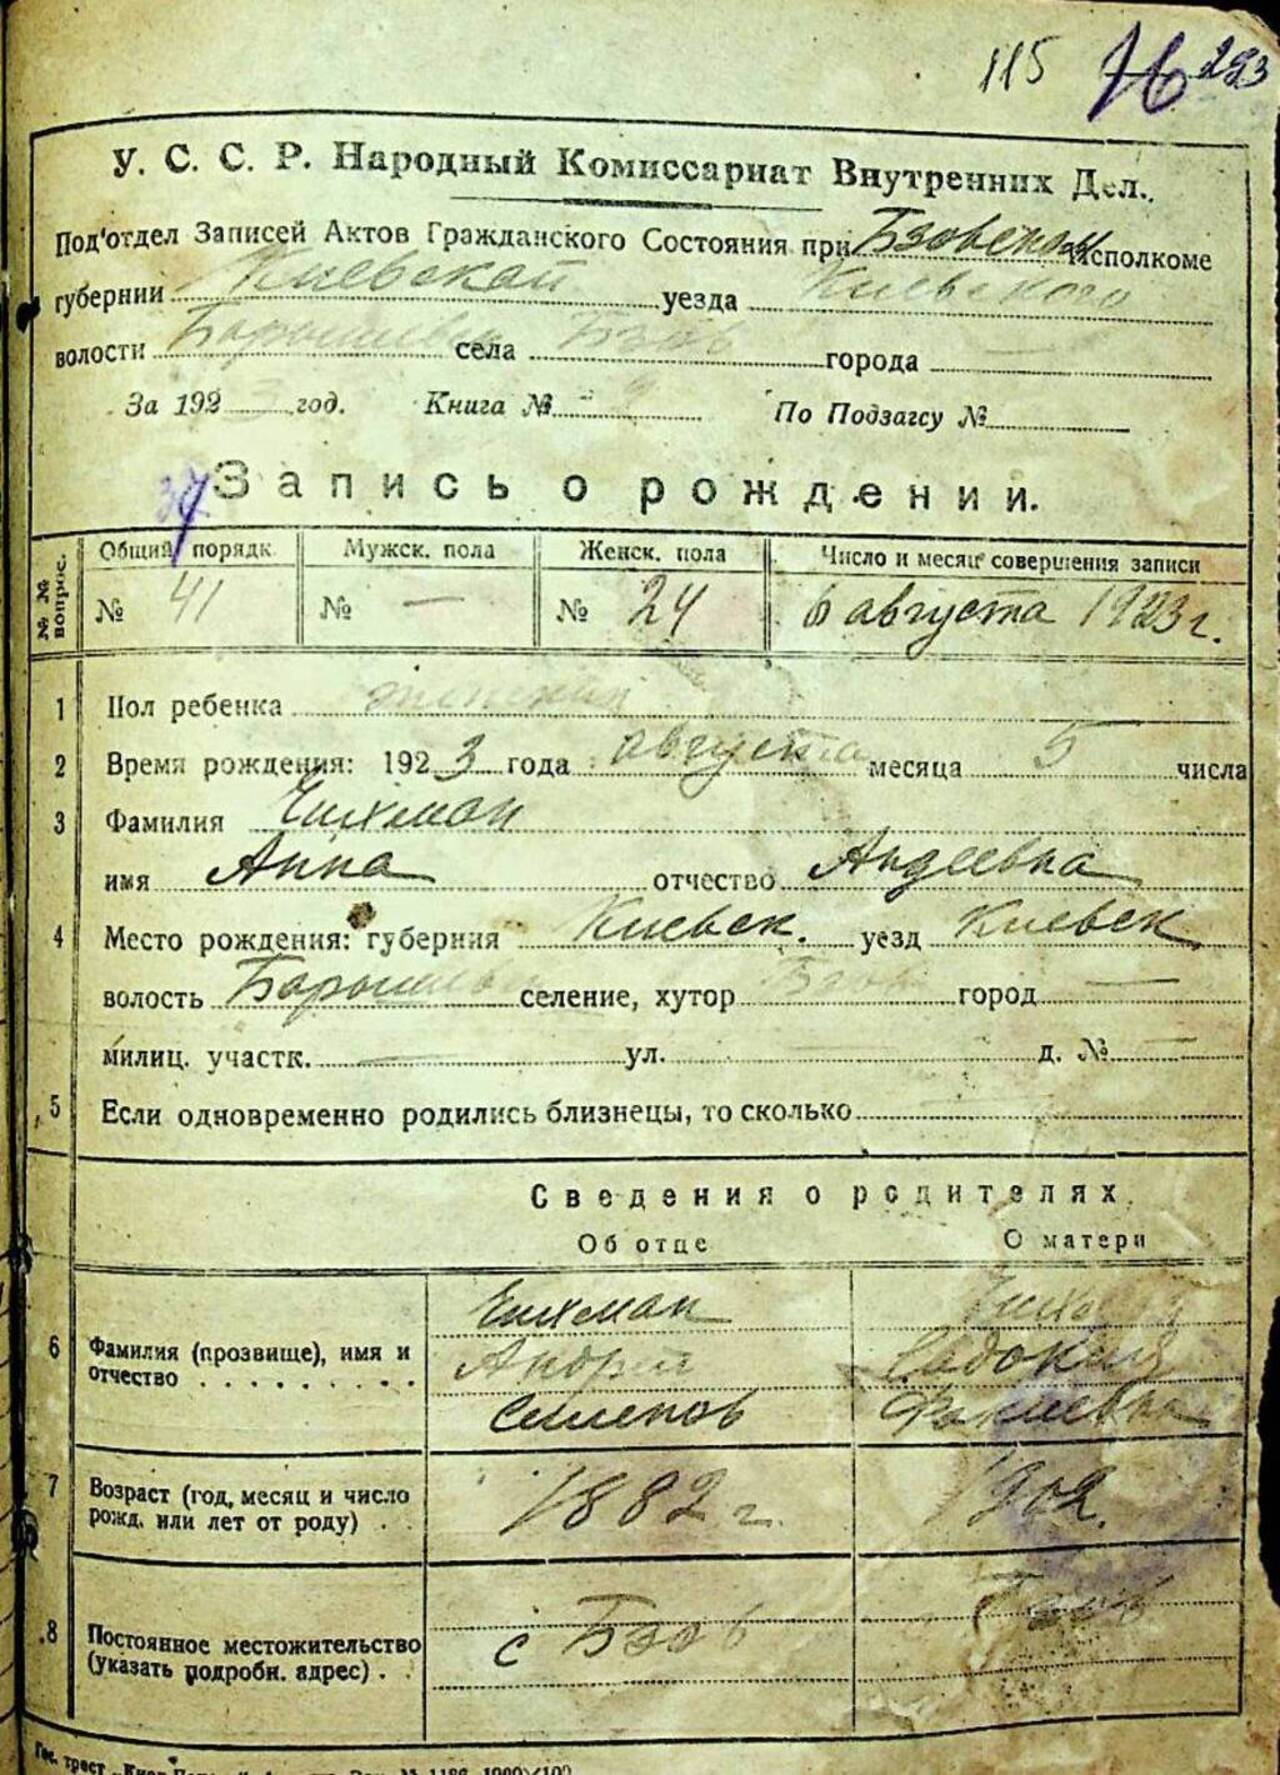 115 76 293
У. С. С. Р. Народный Комиссариат Внутренних Дел.
Под'отдел Записей Актов Гражданского Состояния при Бзовском Исполкоме
губернии Киевской уезда Киевского
волости села Бзов города —
За 192 3 год. Книга № По Подзагсу №
37
Запись о рождении.
№ № вопрос. Общий порядк. Мужск. пола Женск. пола Число и месяц совершения записи
№ 41 № — № 24 6 августа 1923 г.
1 Пол ребенка женский
2 Время рождения: 192 3 года августа месяца 5 числа
3 Фамилия Ейхман
имя Анна отчество Авдеевна
4 Место рождения: губерния Киевск. уезд Киевск
волость Барышевс селение, хутор Бзов город —
милиц. участк. — ул. — д. № —
5 Если одновременно родились близнецы, то сколько —
Сведения о родителях.
Об отце О матери
Ейхман
6 Фамилия (прозвище), имя и
отчество . . . . . . . . .
Семенов
7 Возраст (год, месяц и число
рожд. или лет от роду) . . 1882 г. 1902.
8 Постоянное местожительство
(указать подробн. адрес) . . с Бзов Бзов
Гос. трест